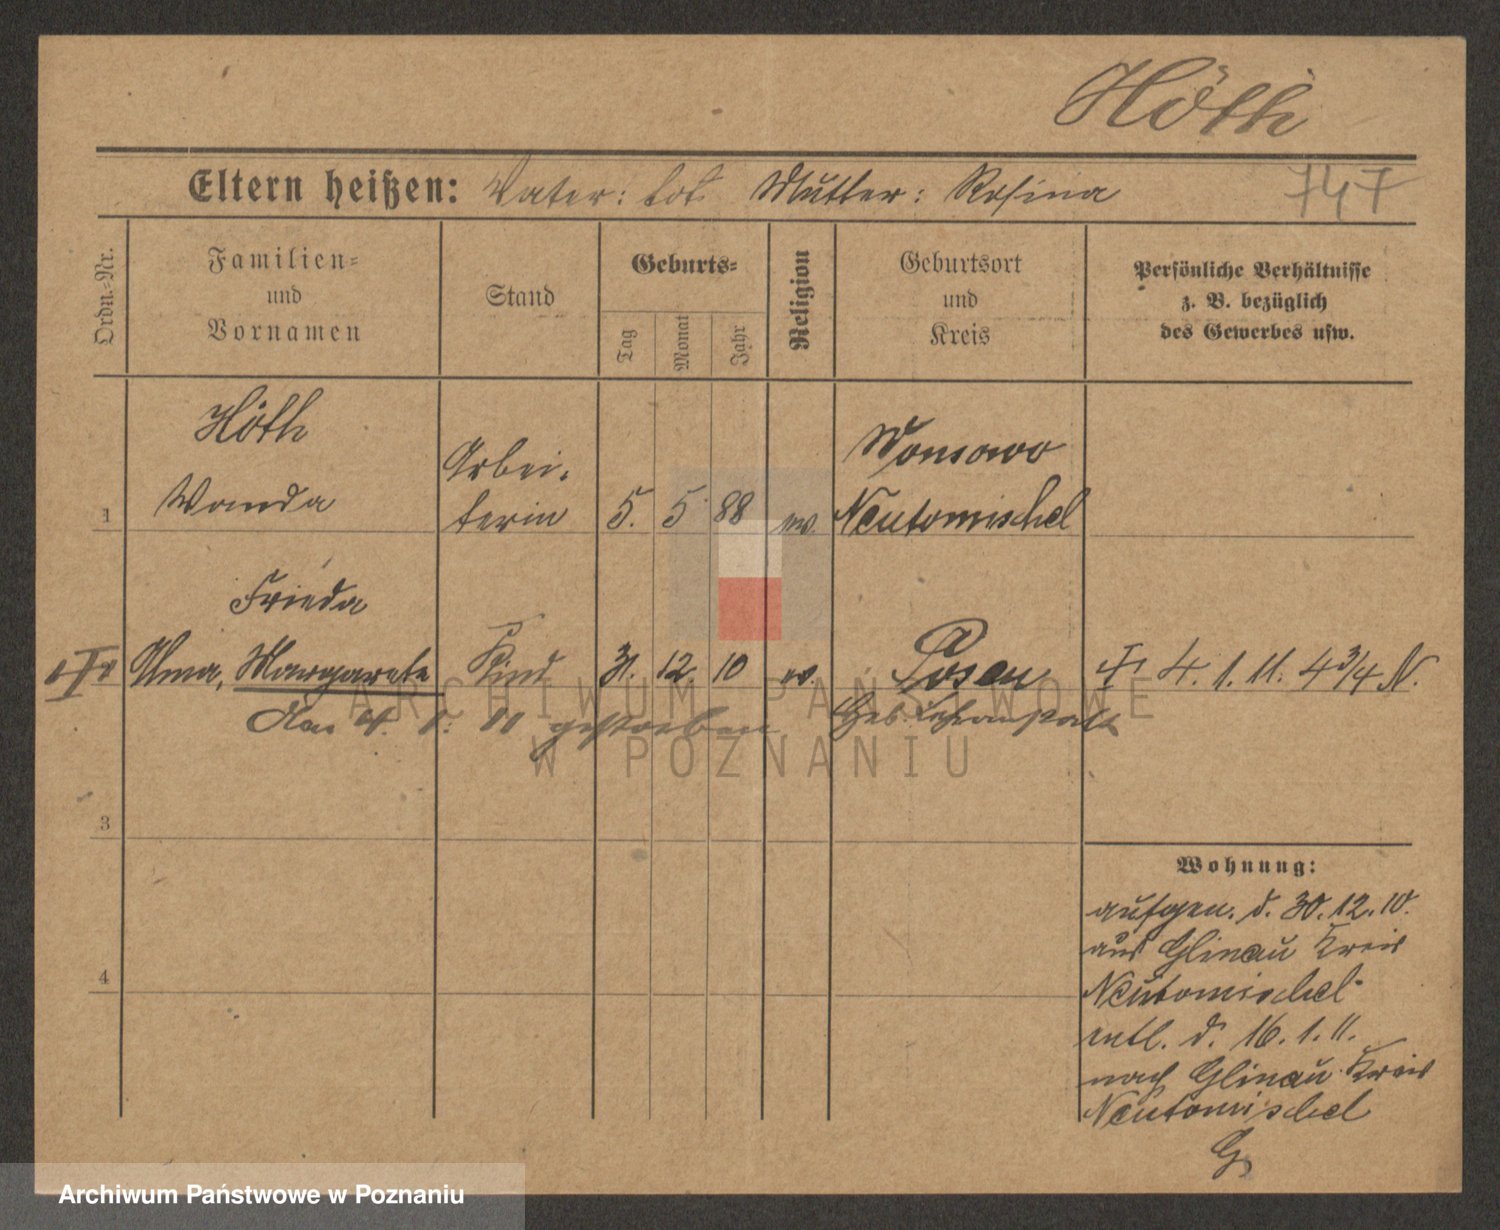 Höth
Eltern heißen: Vater: tot. Mutter: Rosina
747
Ordn.-Nr.
Familien-
und
Vornamen
Stand
Geburts-
Tag
Monat
Jahr
Religion
Geburtsort
und
Kreis
Persönliche Verhältnisse
z. B. bezüglich
des Gewerbes usw.
1
Höth
Wanda
Arbei-
terin
5. 5. 88
ev.
Wonsowo
Neutomischel
Frieda
Alma, Margarete
Kind
31. 12. 10
ev.
Posen
† 4. 1. 11. 4 3/4 N.
Am 4. 1. 11 gestorben
Heb. Lehranstalt
3
4
Wohnung:
aufgen. d. 30. 12. 10.
aus Glinau Kreis
Neutomischel
entl. d. 16. 1. 11.
nach Glinau Kreis
Neutomischel
G
ARCHIWUM PAŃSTWOWE
W POZNANIU
Archiwum Państwowe w Poznaniu